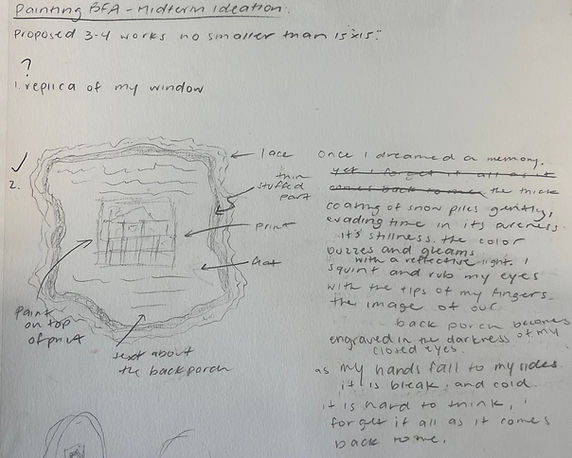 Painting BFA - Midterm Ideation.
Proposed 3-4 works no smaller than 15"x15".
?
1. replica of my window
2.
lace
thin
stuffed
part
print
flat
paint
on top
of print
text about
the back porch
Once I dreamed a memory.
yet i forget it all as it
comes back to me, the thick
coating of snow piles gently,
evading time in its pureness
it's stillness. the color
buzzes and gleams
with a reflective light. I
squint and rub my eyes
with the tips of my fingers
the image of our
back porch becomes
engraved in the darkness of my
closed eyes.
as my hands fall to my sides
it is bleak and cold.
it is hard to think, i
forget it all as it comes
back to me.